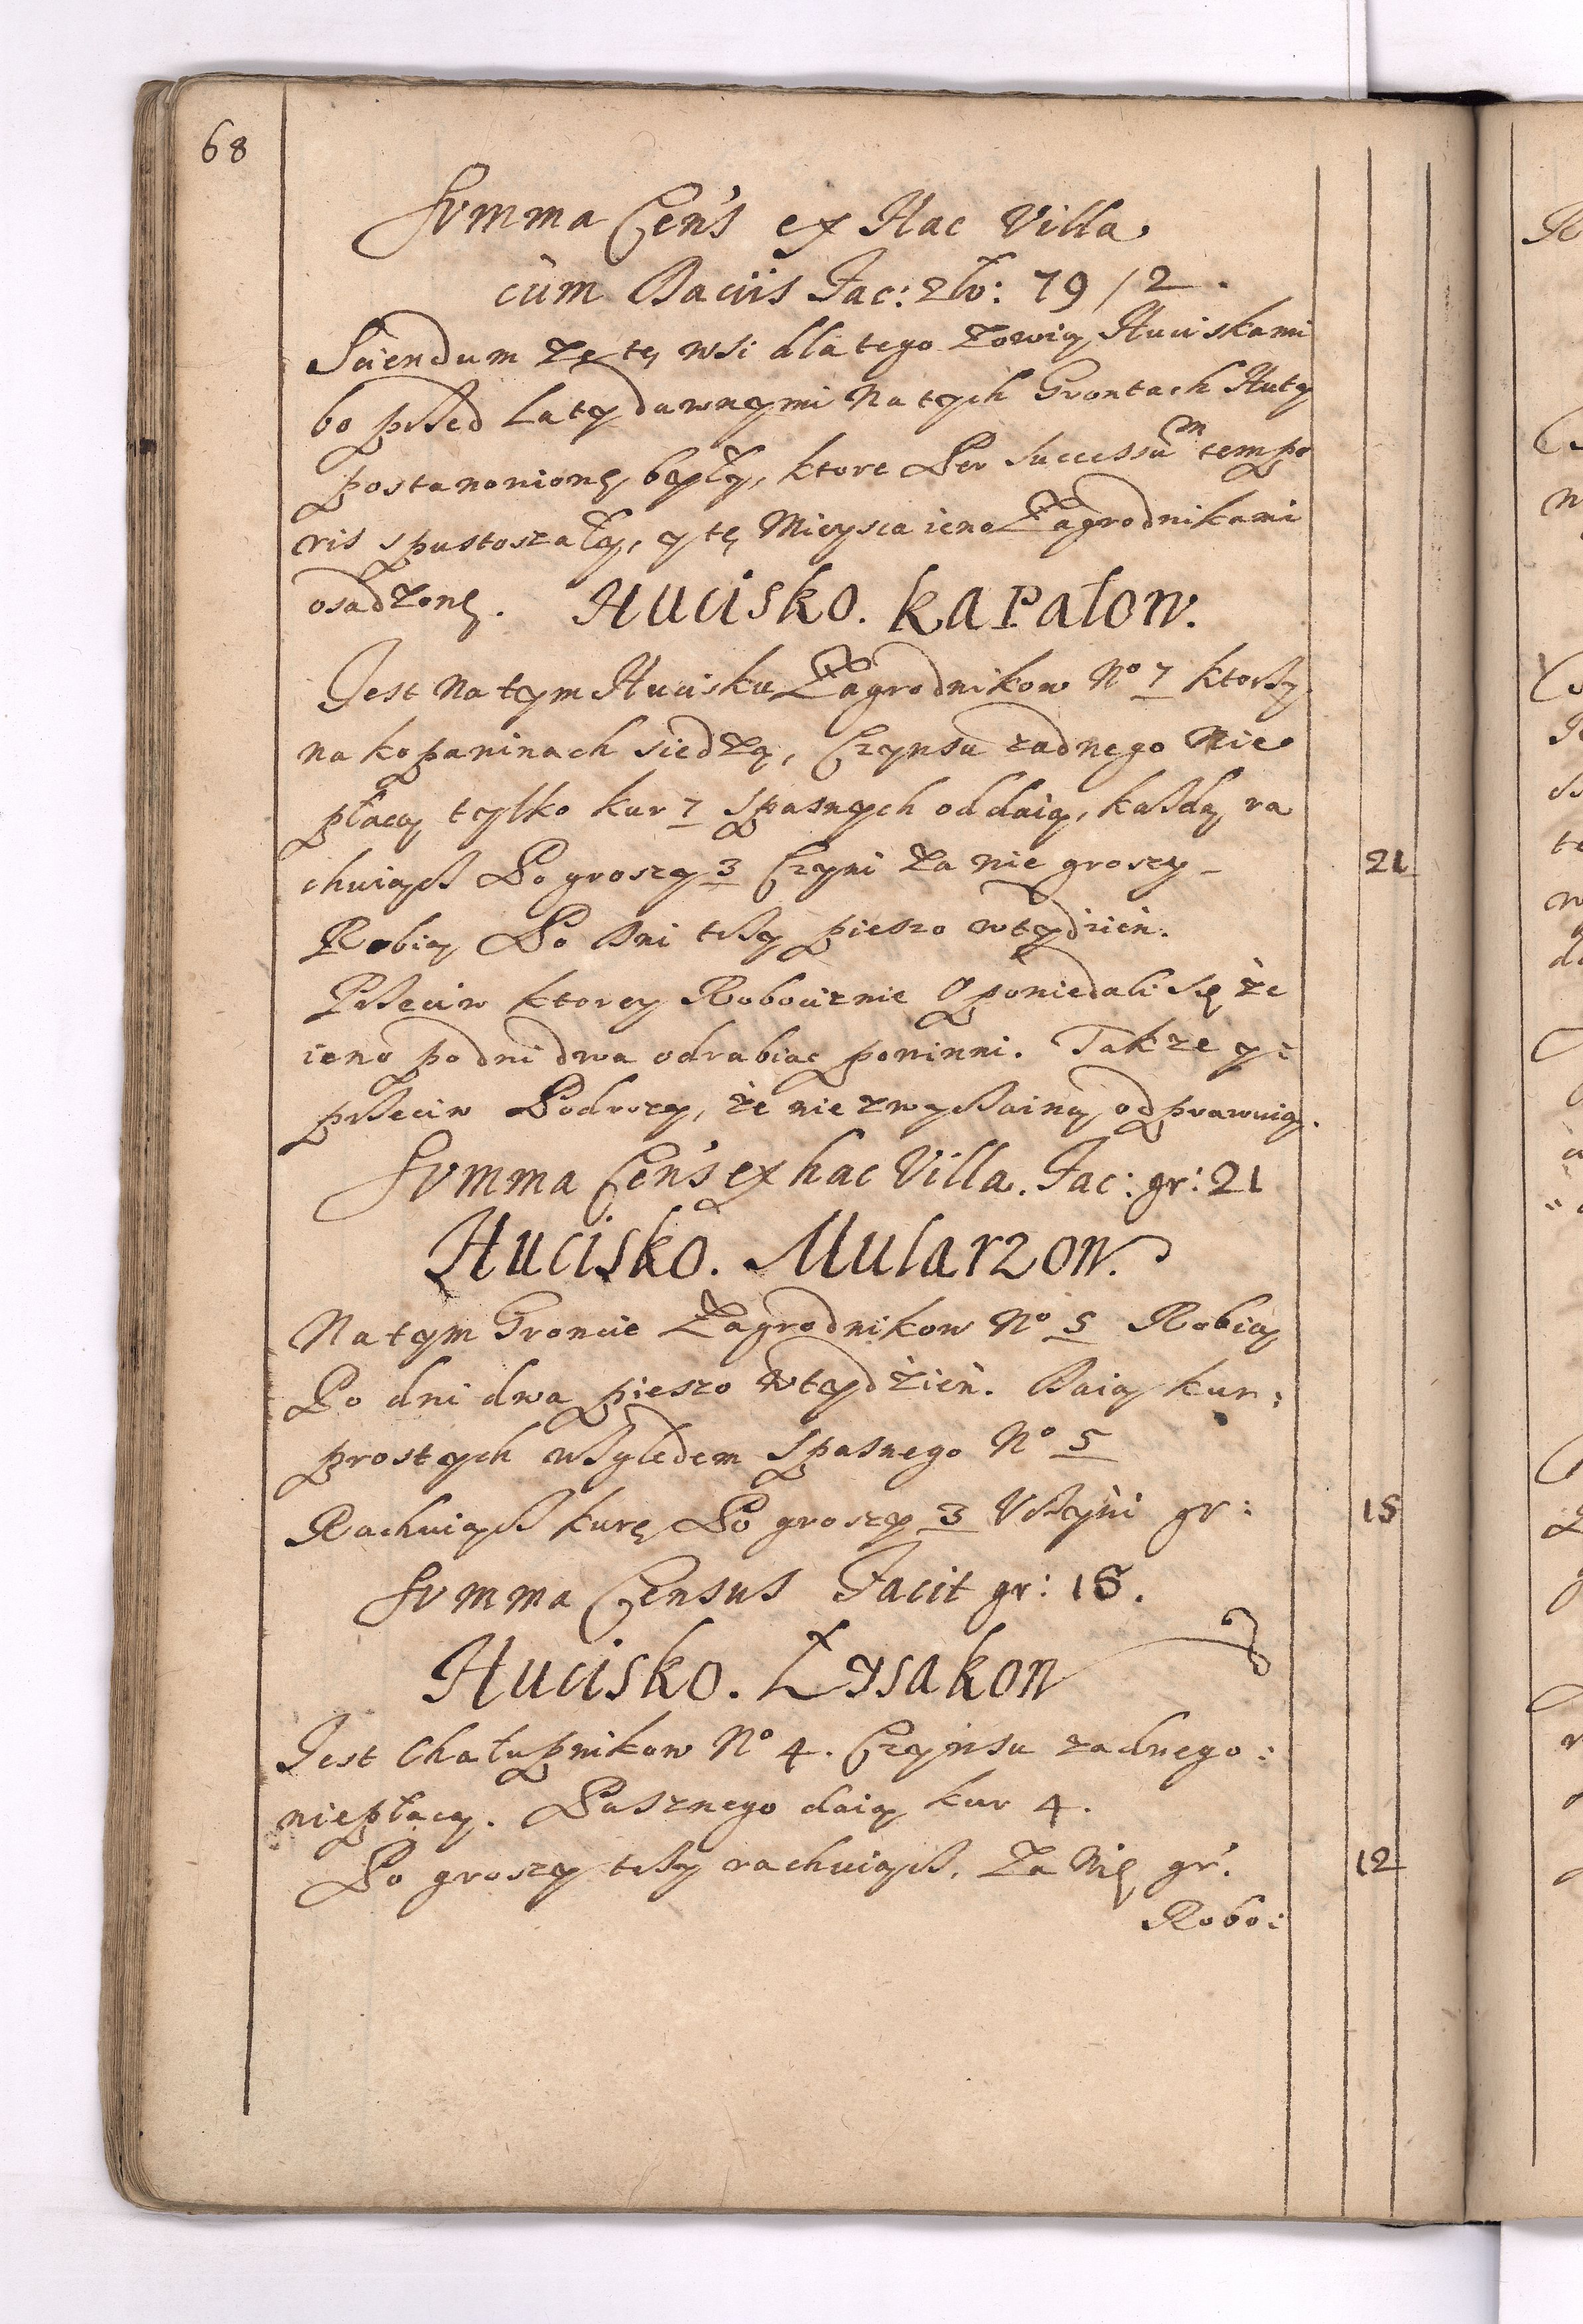 68
Summa Cens's ex Hac Villa
cum Daciis Fac: zło: 79 / 2.
Sciendum że tę wsi dla tego zowią Huciskami
bo przed laty dawnymi na tych Grontach Huty
postanowionę były, ktore Per successum tempo
ris spustoszały, y tę Mieysca ieno Zagrodnikami
osadzonę. Hucisko. Kapalow.
Jest na tym Hucisku Zagrodnikow No 7 ktorzy
na kopaninach siedzą, Czynsu zadnego Nie
płacą tylko kur 7 spasnych oddaią, każdą ra
chuiąc Po groszy 3 Czyni za nie groszy - 21
Robią Po dni trzy pieszo wtydzień.
Przeciw ktorey Robociznie Opowiedali się że
ieno po dni dwa odrabiac powinni. Takze y:
przeciw Podrozy, że nie zwyczainą odprawuią.
Summa Cens's ex hac Villa. Fac: gr: 21
Hucisko. Mularzow.
Na tym Groncie Zagrodnikow No 5 Robią
Po dni dwa pieszo wtydzień. Daią kur:
prostych wzgledem spasnego No 5
Rachuiąc kurę Po groszy 3 Vczyni gr: 15
Summa Census Facit gr: 15.
Hucisko. Łysakow
Jest Chałupnikow No 4. Czynsu zadnego:
niepłacą. Pasznego daią kur 4.
Po groszy trzy rachuiąc. Za Nię gr. 12
Robo: